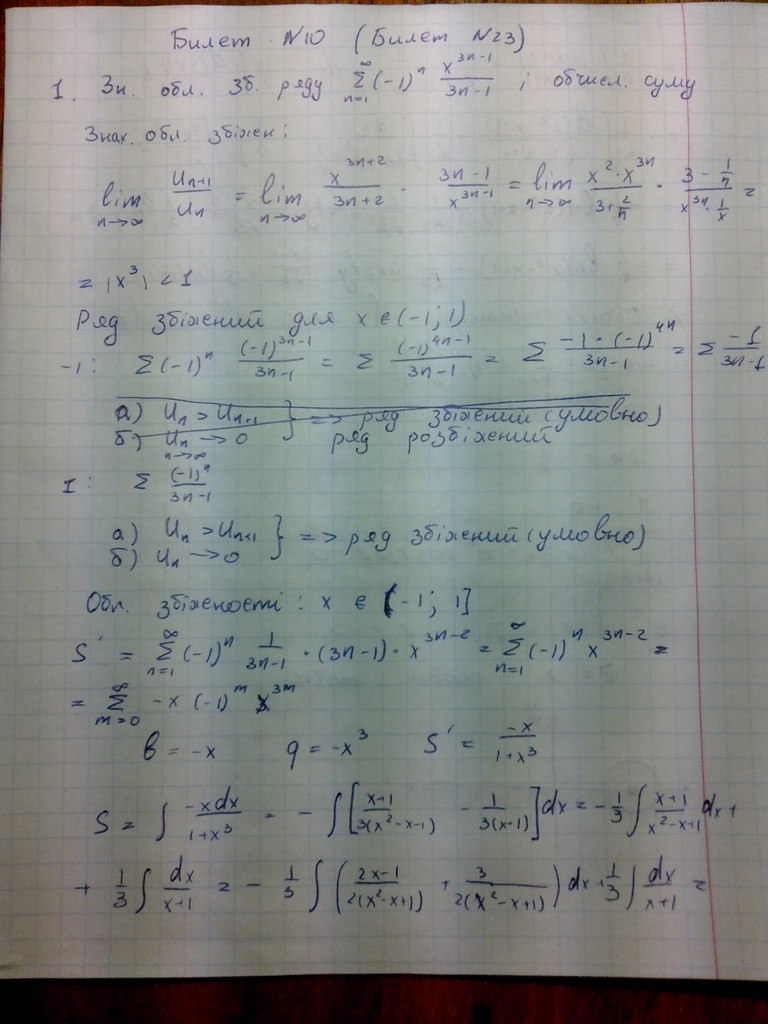 Билет №10 (Билет №23)
1. Зн. обл. зб. ряду ∑_{n=1}^{∞} (-1)^n x^{3n-1}/(3n-1) ; обчисл. суму
Знах. обл. збіжен:
lim_{n→∞} U_{n+1}/U_n = lim_{n→∞} x^{3n+2}/(3n+2) · (3n-1)/x^{3n-1} = lim_{n→∞} (x^2 · x^{3n})/(3+2/n) · (3-1/n)/(x^{3n} · 1/x) =
= |x^3| < 1
Ряд збіжений для x ∈ (-1; 1)
-1: ∑(-1)^n (-1)^{3n-1}/(3n-1) = ∑ (-1)^{4n-1}/(3n-1) = ∑ (-1·(-1)^{4n})/(3n-1) = ∑ -1/(3n-1)
а) U_n > U_{n+1} } => ряд збіжений (умовно)
б) U_n → 0 (n→∞) ряд розбіжений
1: ∑ (-1)^n/(3n-1)
а) U_n > U_{n+1} } => ряд збіжений (умовно)
б) U_n → 0
Обл. збіжності: x ∈ (-1; 1]
S' = ∑_{n=1}^{∞} (-1)^n 1/(3n-1) · (3n-1) · x^{3n-2} = ∑_{n=1}^{∞} (-1)^n x^{3n-2} =
= ∑_{m=0}^{∞} -x (-1)^m x^{3m}
b = -x q = -x^3 S' = -x/(1+x^3)
S = ∫ -xdx/(1+x^3) = - ∫ [(x+1)/(3(x^2-x-1)) - 1/(3(x+1))] dx = -1/3 ∫ (x+1)/(x^2-x+1) dx +
+ 1/3 ∫ dx/(x+1) = - 1/3 ∫ ((2x-1)/(2(x^2-x+1)) + 3/(2(x^2-x+1))) dx + 1/3 ∫ dx/(x+1) =